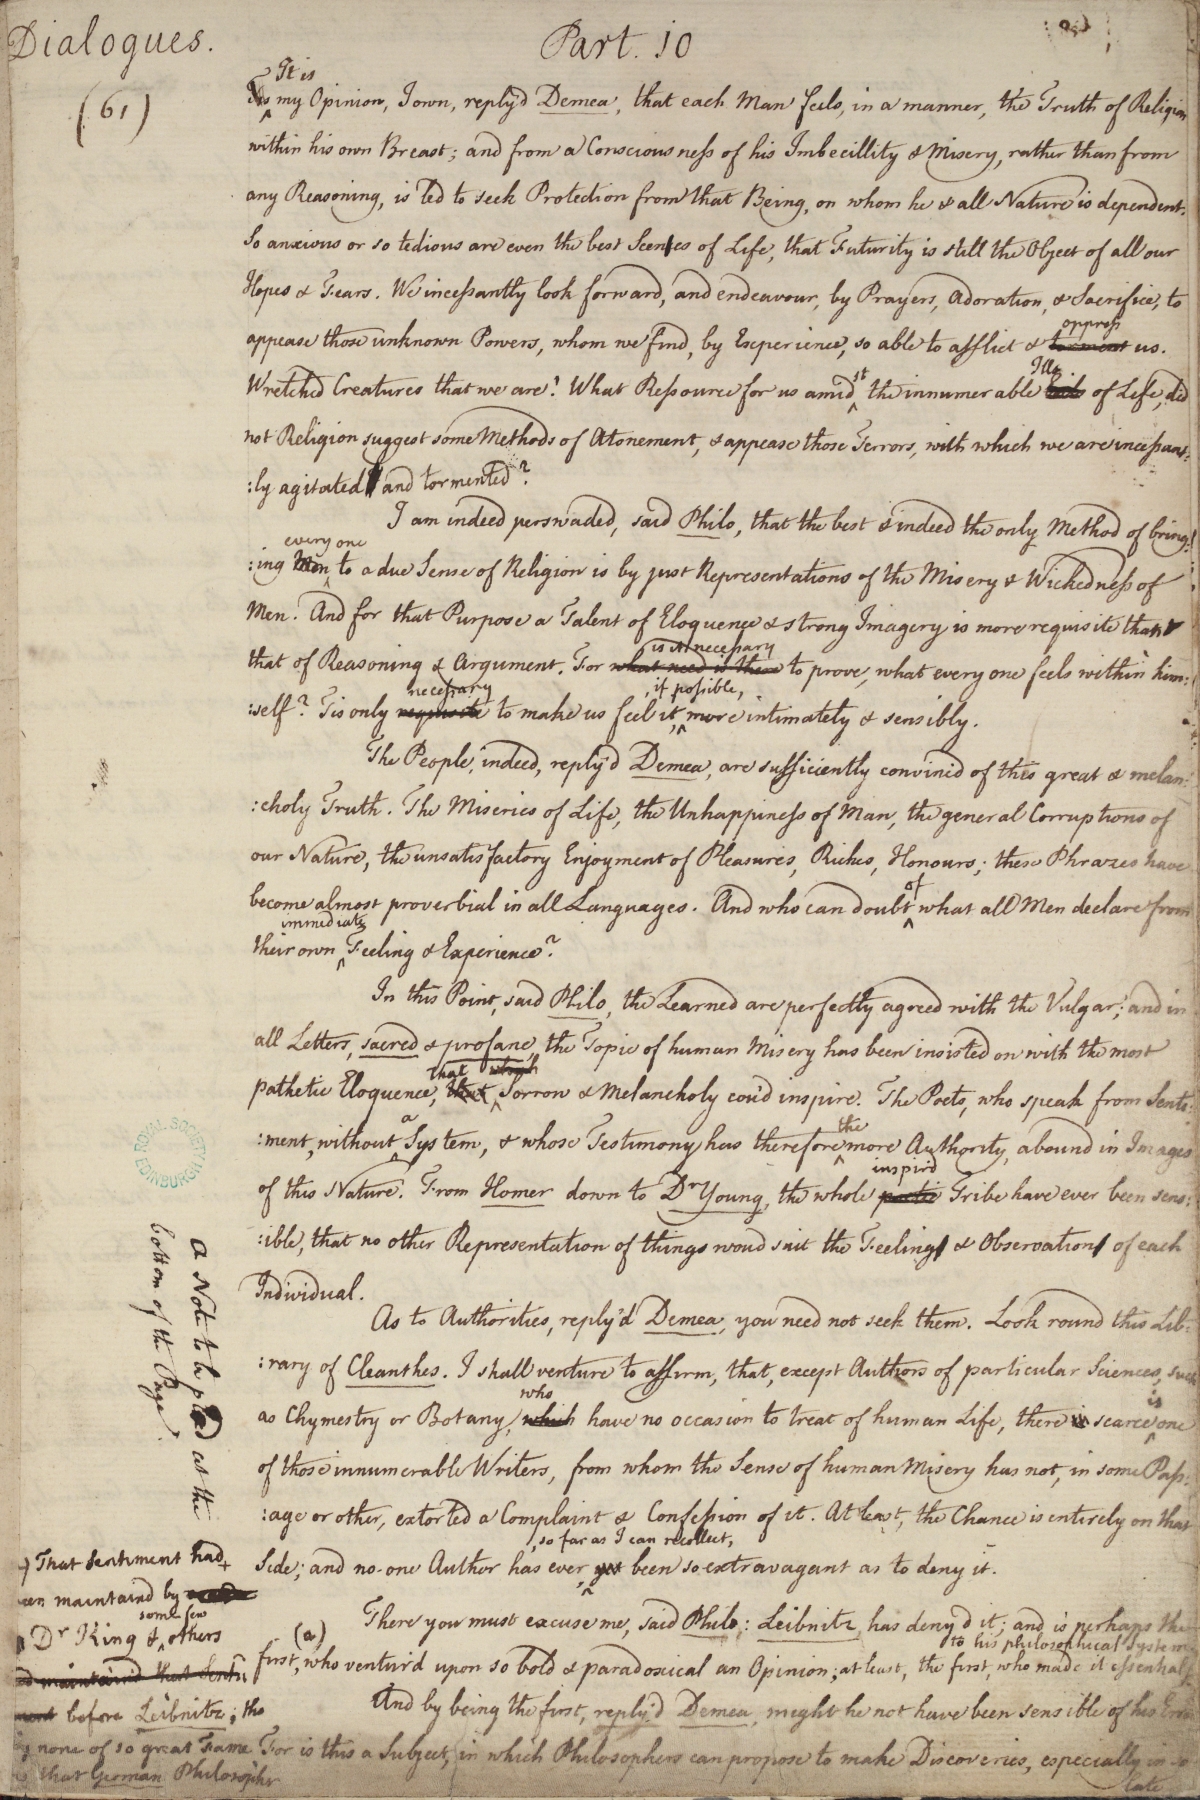 Dialogues.
Part. 10
(61)
It is
my Opinion, I own, reply'd Demea, that each Man feels, in a manner, the Truth of Religion
within his own Breast; and from a Consciousness of his Imbecillity & Misery, rather than from
any Reasoning, is led to seek Protection from that Being, on whom he & all Nature is dependent.
So anxious or so tedious are even the best Scenes of Life, that Futurity is still the Object of all our
Hopes & Fears. We incessantly look forward, and endeavour, by Prayers, Adoration, & Sacrifice, to
oppress
appease those unknown Powers, whom we find, by Experience, so able to afflict & torment us.
st Ills
Wretched Creatures that we are! What Ressource for us amid the innumerable of Life, did
not Religion suggest some Methods of Atonement, & appease those Terrors, with which we are incessant:
:ly agitated and tormented?
I am indeed perswaded, said Philo, that the best & indeed the only Method of bring:
every one
:ing Men to a due Sense of Religion is by just Representations of the Misery & Wickedness of
Men. And for that Purpose a Talent of Eloquence & strong Imagery is more requisite than
is it necessary
that of Reasoning & Argument. For what need is there to prove, what every one feels within him:
necessary , if possible,
:self? Tis only requisite to make us feel it, more intimately & sensibly.
The People, indeed, reply'd Demea, are sufficiently convinc'd of this great & melan:
:choly Truth. The Miseries of Life, the Unhappiness of Man, the general Corruptions of
our Nature, the unsatisfactory Enjoyment of Pleasures, Riches, Honours; these Phrazes have
of
become almost proverbial in all Languages. And who can doubt what all Men declare from
immediate
their own Feeling & Experience?
In this Point, said Philo, the Learned are perfectly agreed with the Vulgar; and in
all Letters, sacred & profane, the Topic of human Misery has been insisted on with the most
that which
pathetic Eloquence, that Sorrow & Melancholy cou'd inspire. The Poets, who speak from Senti:
a the
:ment, without System, & whose Testimony has therefore more Authority, abound in Images
inspir'd
of this Nature. From Homer down to Dr Young, the whole poetic Tribe have ever been sens:
:ible, that no other Representation of things woud suit the Feeling & Observation of each
Individual.
As to Authorities, reply'd Demea, you need not seek them. Look round this Lib:
:rary of Cleanthes. I shall venture to affirm, that, except Authors of particular Sciences, such
who is
as Chymestry or Botany, which have no occasion to treat of human Life, there is scarce one
of those innumerable Writers, from whom the Sense of human Misery has not, in some Pass:
:age or other, extorted a Complaint & Confession of it. At least, the Chance is entirely on that
, so far as I can recollect,
Side; and no one Author has ever yet been so extravagant as to deny it.
There you must excuse me, said Philo: Leibnitz has deny'd it; and is perhaps the
(a) to his philosophical System
first, who ventur'd upon so bold & paradoxical an Opinion; at least, the first, who made it essential
And by being the first, reply'd Demea, might he not have been sensible of his Error
For is this a Subject, in which Philosophers can propose to make Discoveries, especially in so
late
a Note to be plac'd at the
bottom of the Page
That Sentiment had
een maintaind by
some few
Dr King & others
maintaind that Senti:
ment before Leibnitz; tho
none of so great Fame
that German Philosopher
ROYAL SOCIETY
EDINBURGH